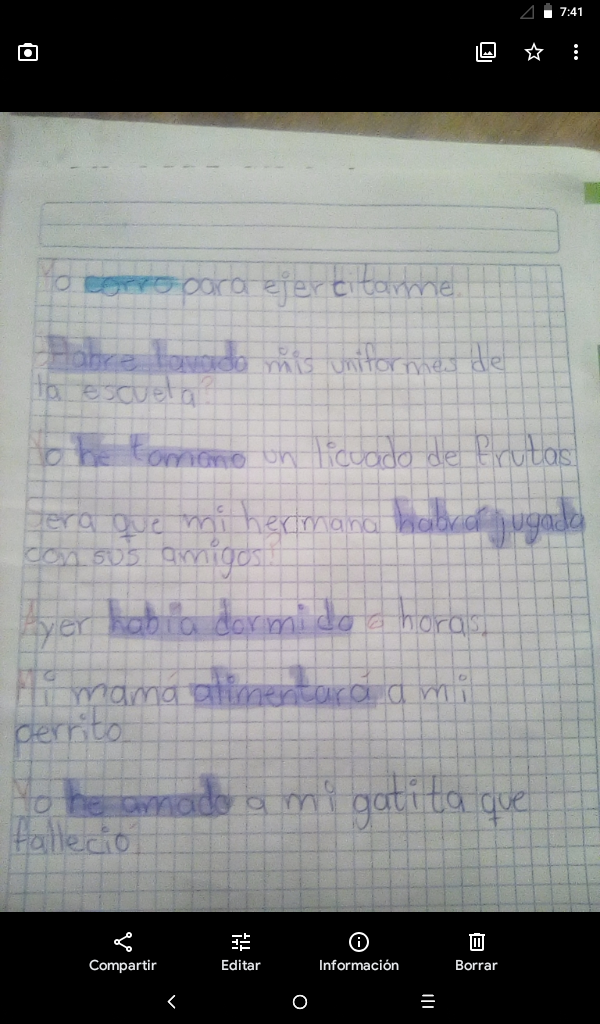 7:41
Yo corro para ejercitarme.
¿Habre lavado mis uniformes de
la escuela?
Yo he tomano un licuado de frutas
Sera que mi hermana habra jugada
con sus amigos?
Ayer había dormido 6 horas.
Mi mamá alimentará a mi
perrito
Yo he amado a mi gatita que
falleció
Compartir
Editar
Información
Borrar